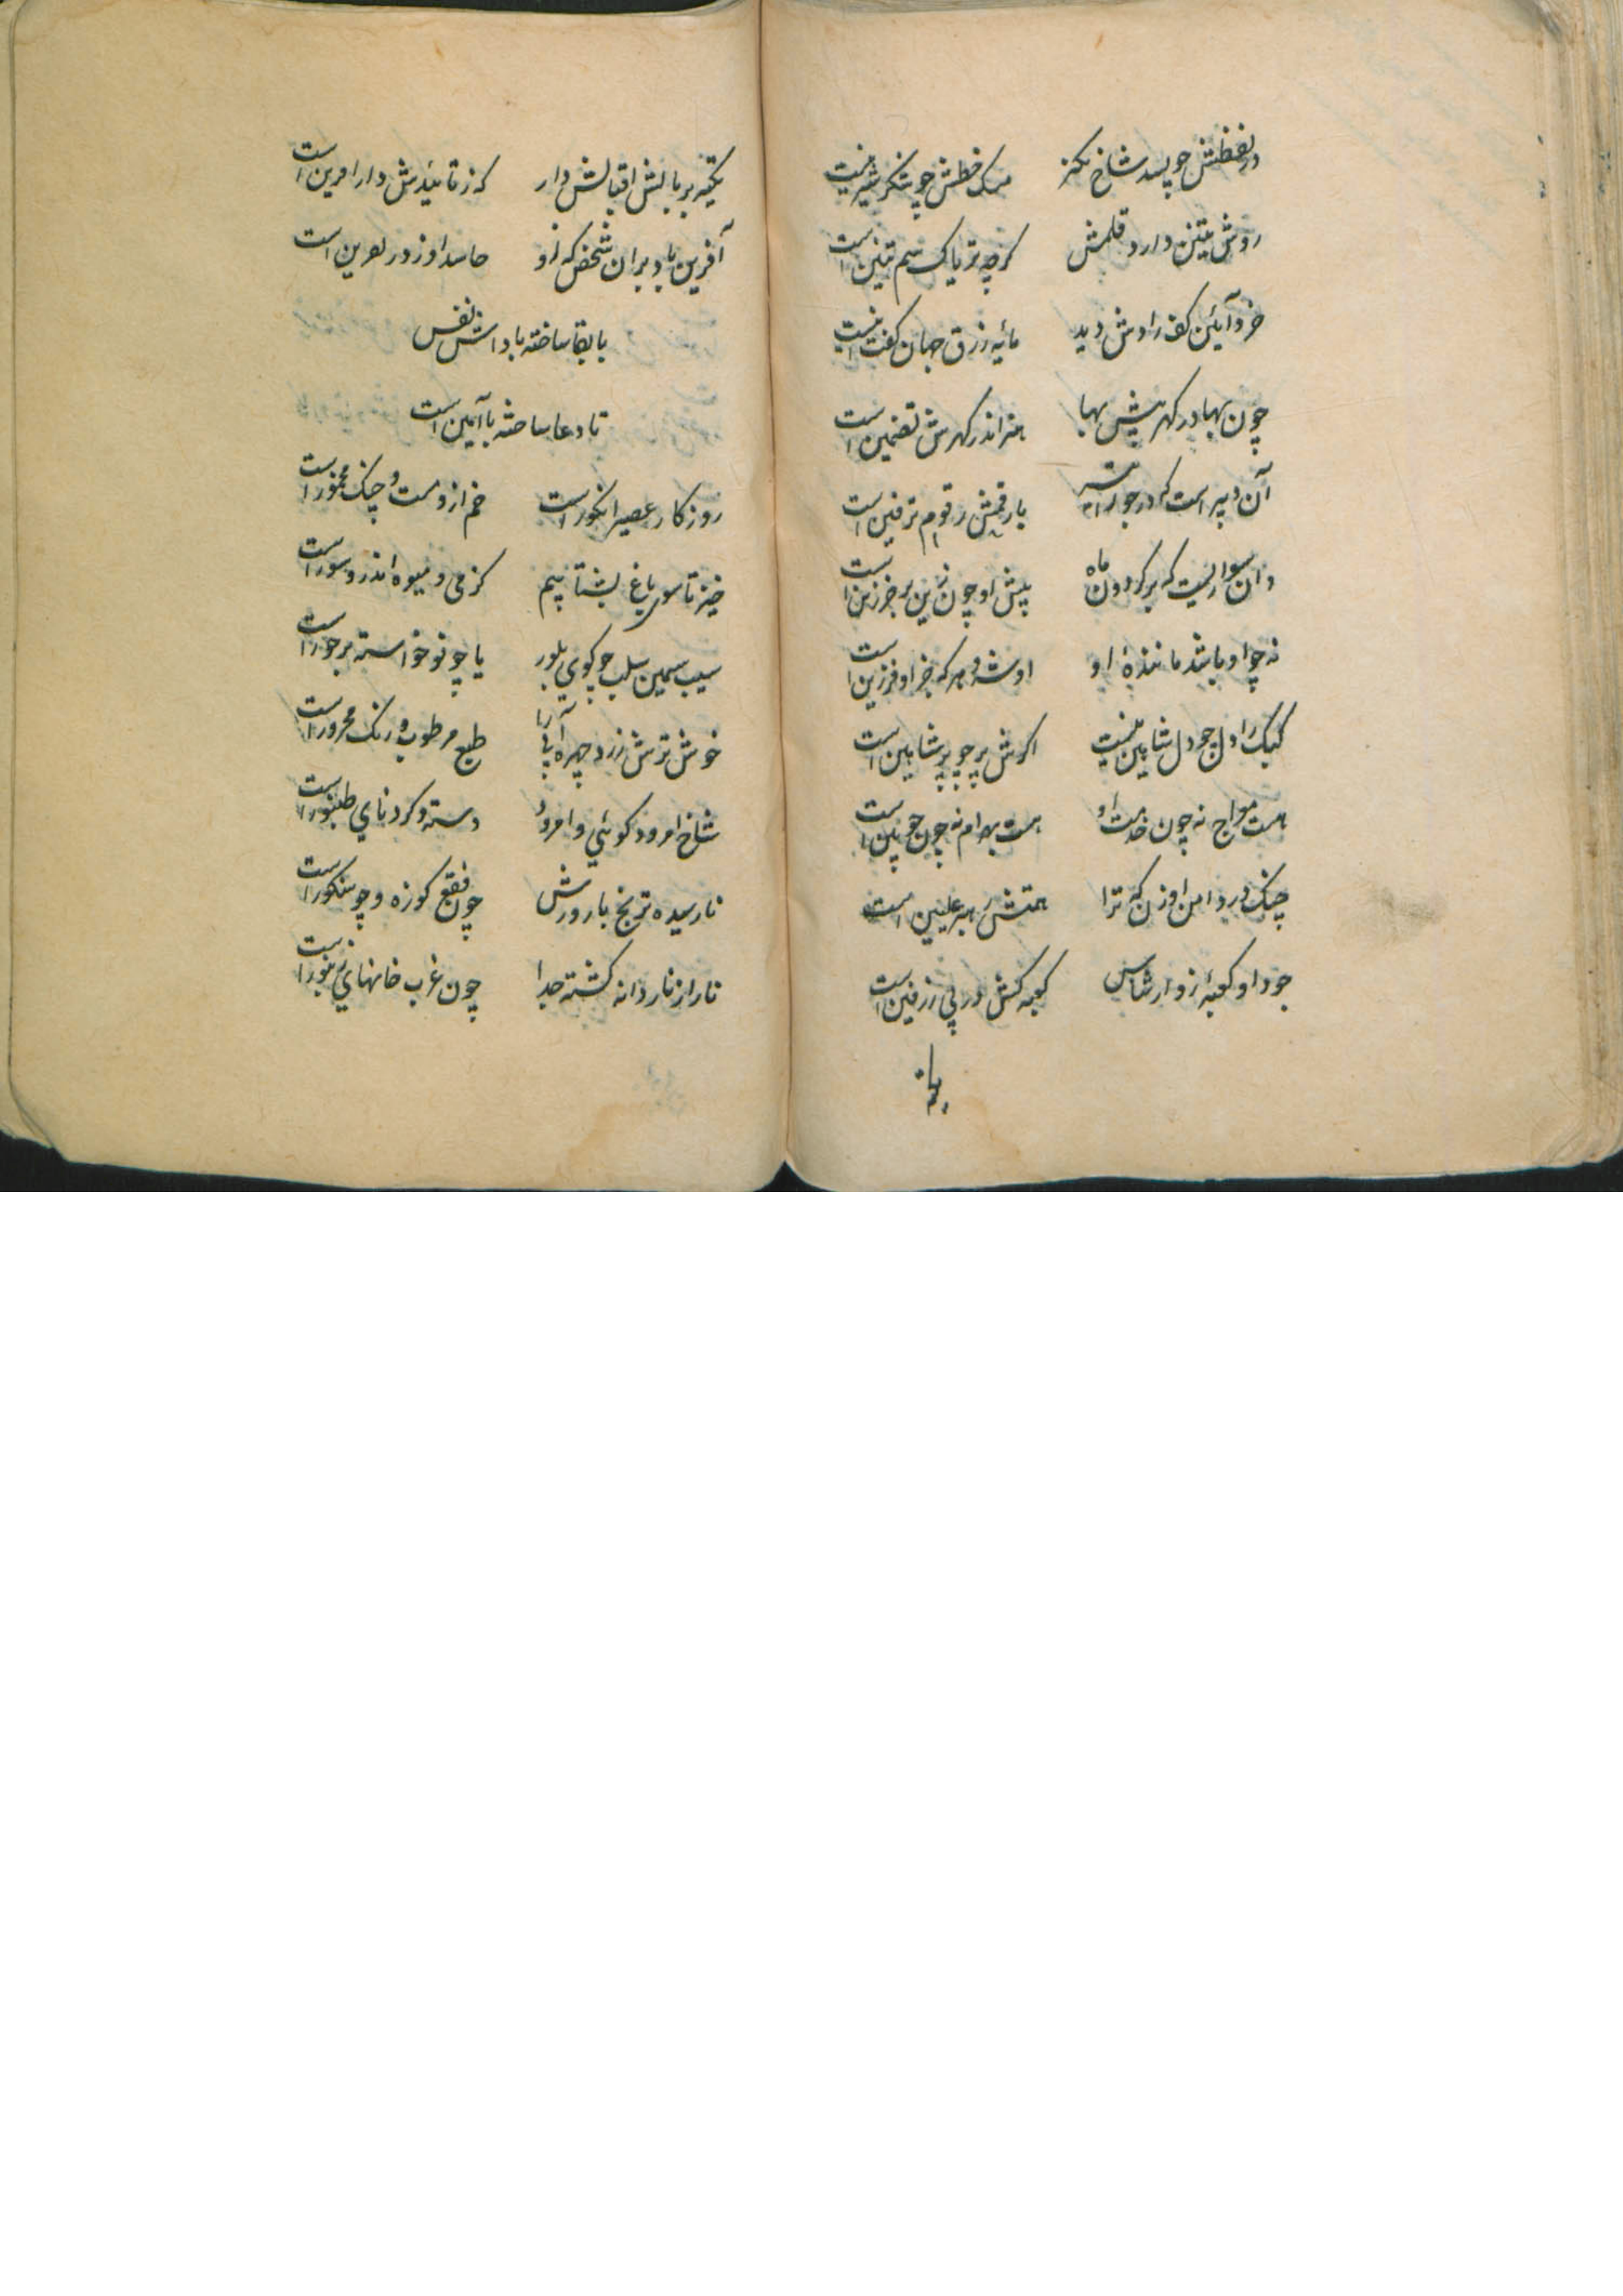 در لفظش چو پسد شاخ نکند مسک خطش چو شکر شیرینست
روش تنین دارد قلمش گرچه تریاک سم تنین است
خرد آیین کف رادش دید مایه رزق جهان گفت اینست
چون بها در گهر بیش بها هنر اندر گهرش تضمین است
آن دبیر است که در جوزا تیر با رقمش رقوم ترقین است
وان سواریست که بر گردون ماه پیش او چون زین بر خرزین است
نه چو او باشد ماننده او او شه و هر که جز او فرزین است
کبک را دل چو دل شاهین نیست اگرش پر چو پر شاهین است
هست مواج نه چون خدمت او هست بهرام نه چون چوبین است
چنگ در دامن او زن که ترا همتش رهبر علیین است
جود او کعبه زوار شناس کعبه کش در پی زرفین است
تکیه بر بالش اقبالش دار که ز تائیدش دارافرین است
آفرین باد بران شخص که او حاسد او ز در نفرین است
با بقا ساخته بادا نفسش
تا دعا ساخته با آمین است
روزگار عصیر انگور است خم ازو مست و چنگ مخمور است
خیز تا سوی باغ بشتابیم کز می و میوه اندرو سور است
سیب سیمین سلب چو گوی بلور یا چو نو خواسته بر حور است
خوش ترش زرد چهره آبی را طبع مرطوب و رنگ محرور است
شاخ امرود گوئی و امرود دسته و گردنای طنبور است
نارسیده ترنج بارورش چون فقع کوزه و چو سنگور است
نار از نار دانه گشته جدا چون غرب خانهای زنبور است